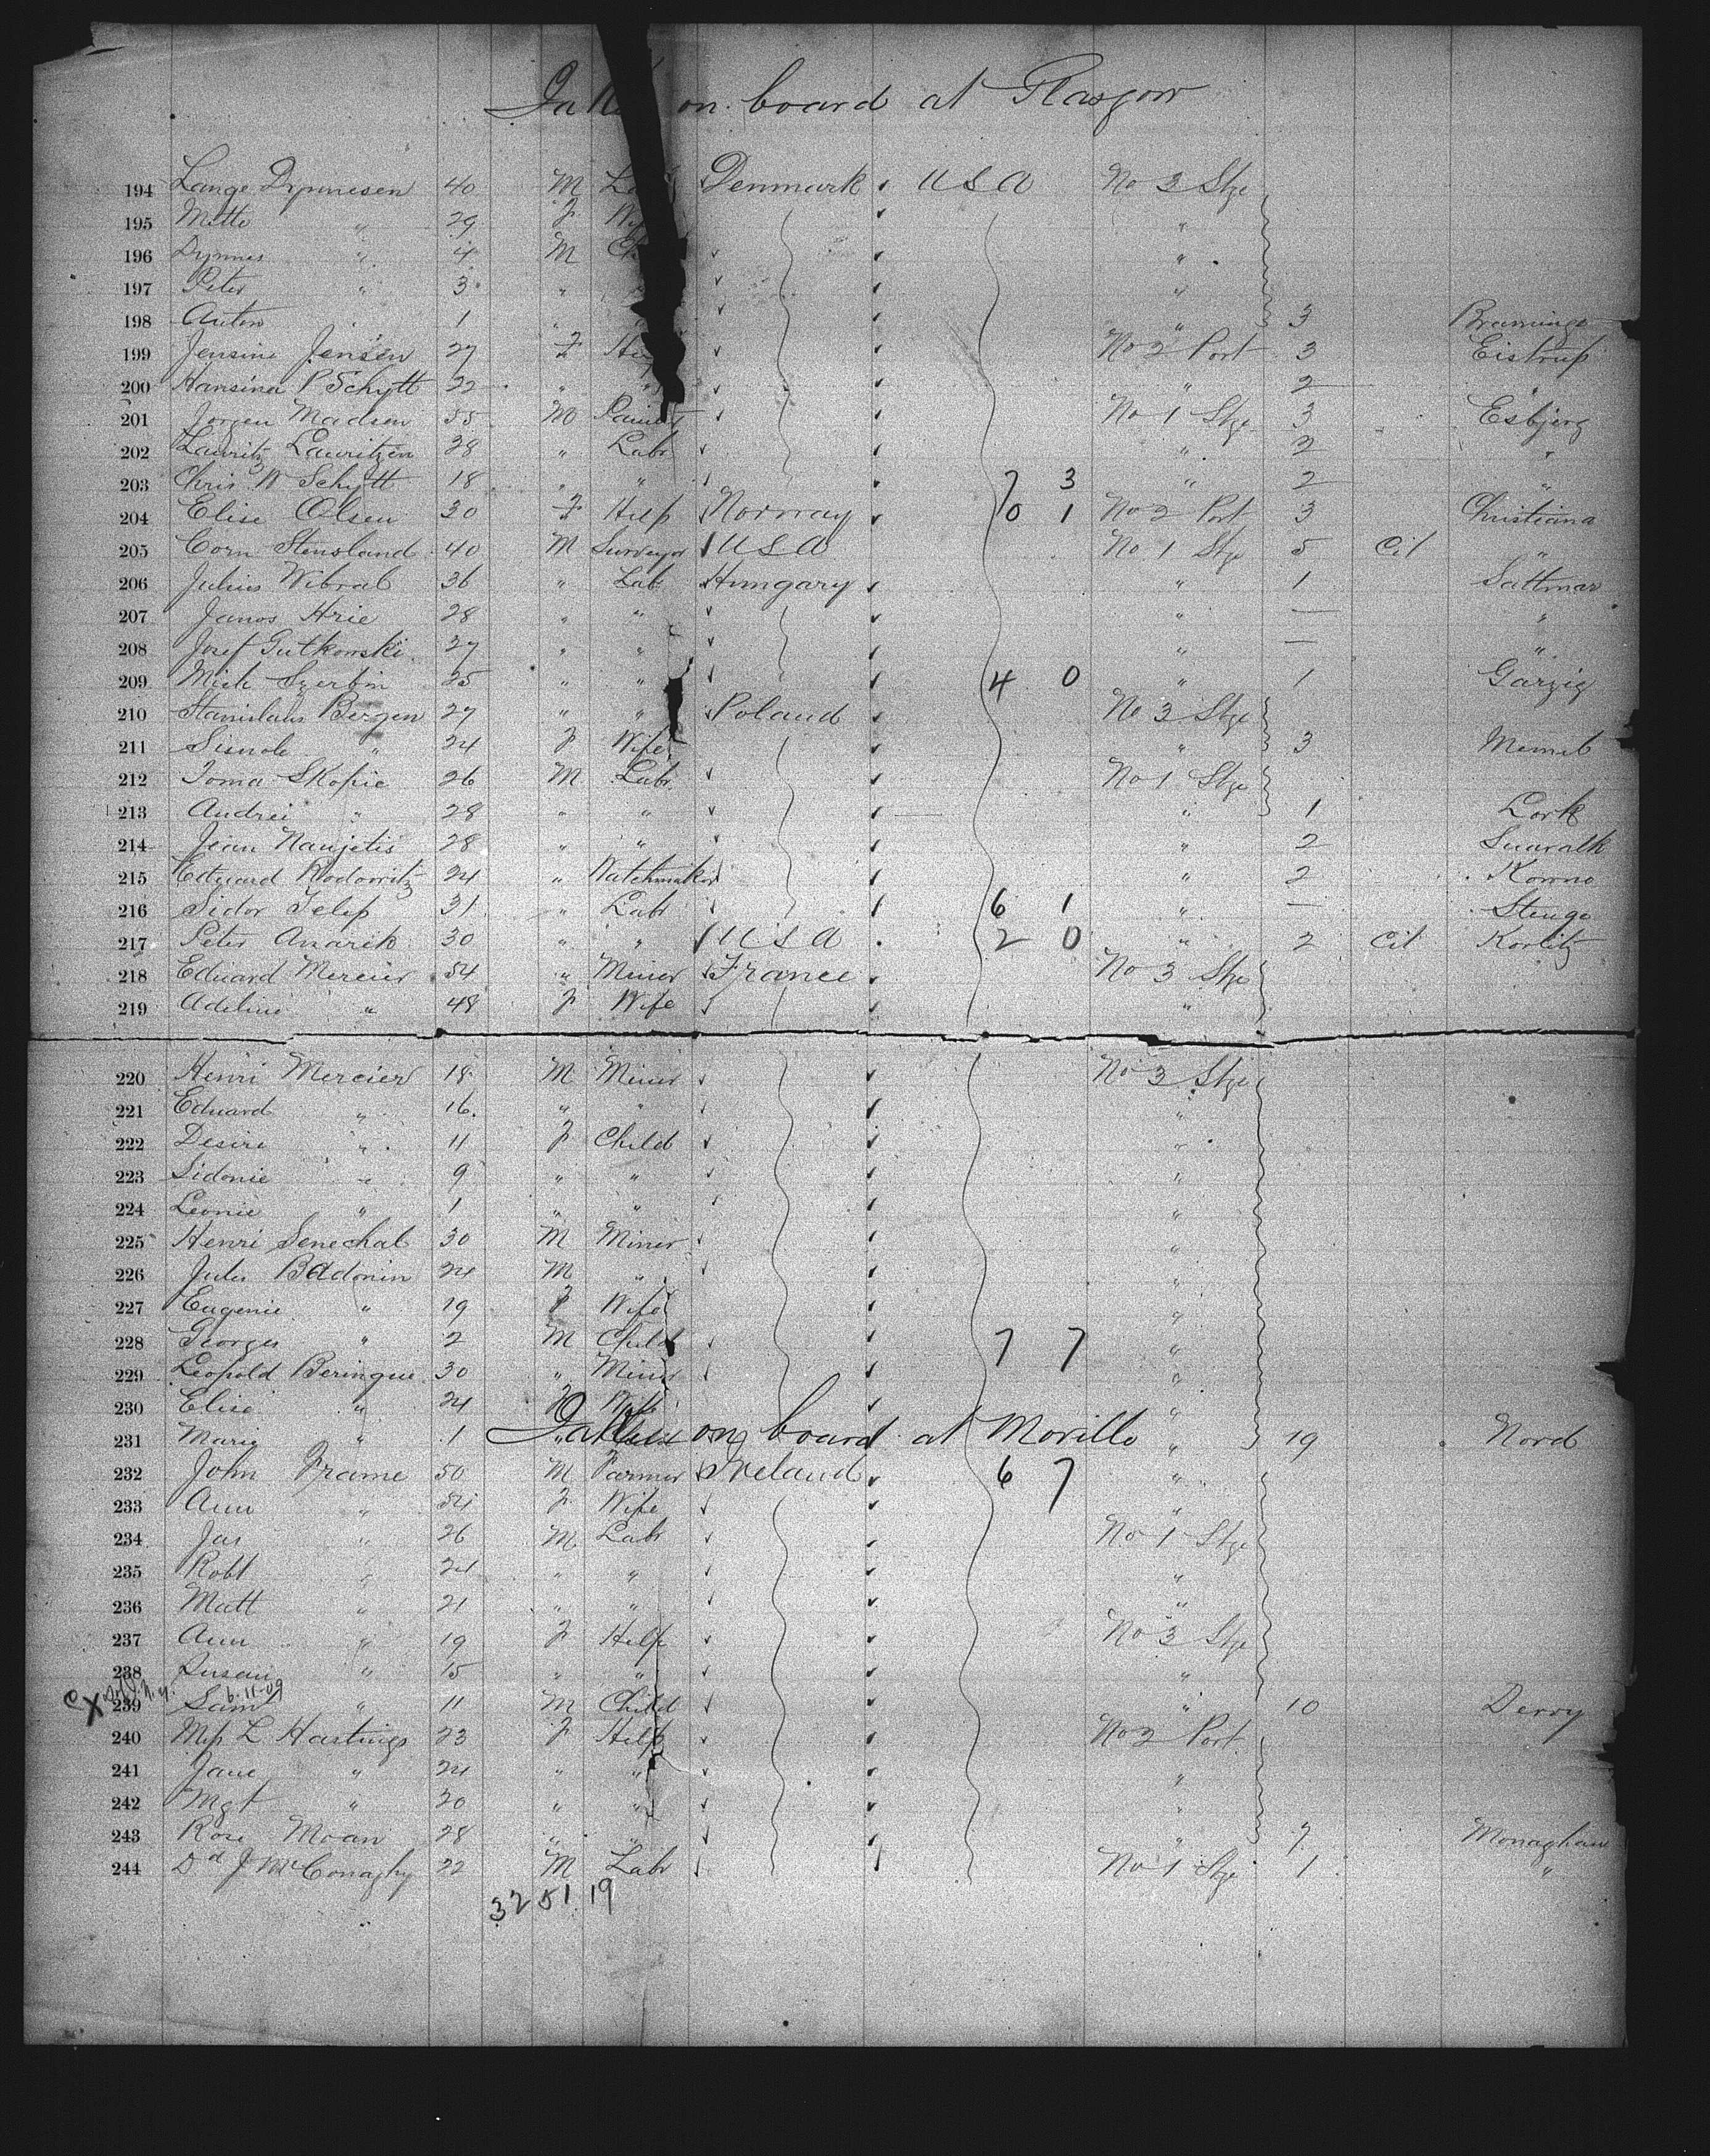 Taken on board at Glasgow
194 Lange Dynnesen 40 M Denmark USA No 3 Stge
195 Mette " 29 F "
196 Dynnes " 4 M "
197 Peter " 3 " "
198 Anton 1 " " 3 Bramminge
199 Jensine Jensen 27 F No 2 Port 3 Eistrup
200 Hansina P Schytt 22 " " " 2 "
201 Jorgen Madsen 35 M No 1 Stge 3 Esbjerg
202 Lauritz Lauritzen 28 " Labr " 2 "
203 Chris W Schytt 18 " " 7 3 " 2 "
204 Elise Olsen 30 F Help Norway 0 1 No 2 Port 3 Christiana
205 Corn Stensland 40 M Surveyor USA No 1 Stge 5 Cit "
206 Julius Wibral 36 " Labr Hungary " 1 Sattmar
207 Janos Hrie 28 " " " — "
208 Josef Gutkowski 37 " " " — "
209 Mich Szerbin 25 " " 4 0 " 1 Garzig
210 Stanislaus Bergen 27 " " Poland No 3 Stge
211 " 24 F Wife " 3
212 Toma Skopie 26 M Labr No 1 Stge
213 Andrei " 28 " " " 1 Lork
214 Jean Naujetis 28 " " " 2 Suwalk
215 Eduard Rodowitz 24 " Watchmaker " 2 Kowno
216 Sidor Telep 31 " Labr 6 1 " —
217 Peter Anarik 30 " " USA 2 0 " 2 Cit Korlitz
218 Eduard Mercier 54 " Miner France No 3 Stge
219 Adeline " 48 F Wife "
220 Henri Mercier 18 M Miner No 3 Stge
221 Eduard " 16 " " "
222 Desire " 11 F Child "
223 Sidonie " 9 " " "
224 Leonie " 1 " " "
225 Henri Senechal 30 M Miner "
226 Jules Badonin 24 M " "
227 Eugenie " 19 F Wife "
228 Georges " 2 M Child 7 7 "
229 Leopold Beringue 30 " Miner "
230 Elise " 24 F Wife "
Taken on board at Moville
231 Marie " 1 " " 19 Nord
232 John Frame 50 M Farmer Ireland 6 7 "
233 Ann " 54 F Wife "
234 Jas " 26 M Labr No 1 Stge
235 Robt " 24 " " "
236 Matt " 21 " " "
237 Ann " 19 F Help No 3 Stge
238 Susan " 15 " " "
6-11-09
239 Saml " 11 M Child " 10 Derry
240 L Hastings 23 F Help No 2 Port
241 Jane " 24 " " "
242 Mgt " 20 " " "
243 Rose Moan 28 " " " 7 Monaghan
244 Dd J McConaghy 22 M Labr No 1 Stge 1 "
32 51 19